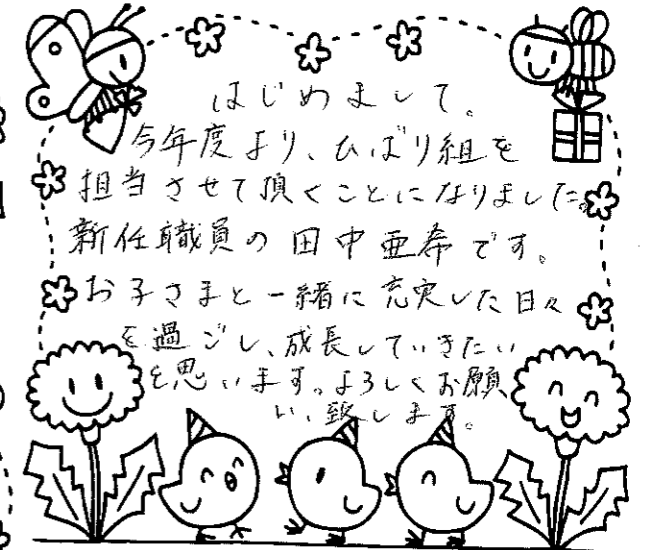 はじめまして。
今年度より、ひばり組を
担当させて頂くことになりました。
新任職員の田中亜希です。
お子さまと一緒に充実した日々
を過ごし、成長していきたい
と思います。よろしくお願
い致します。